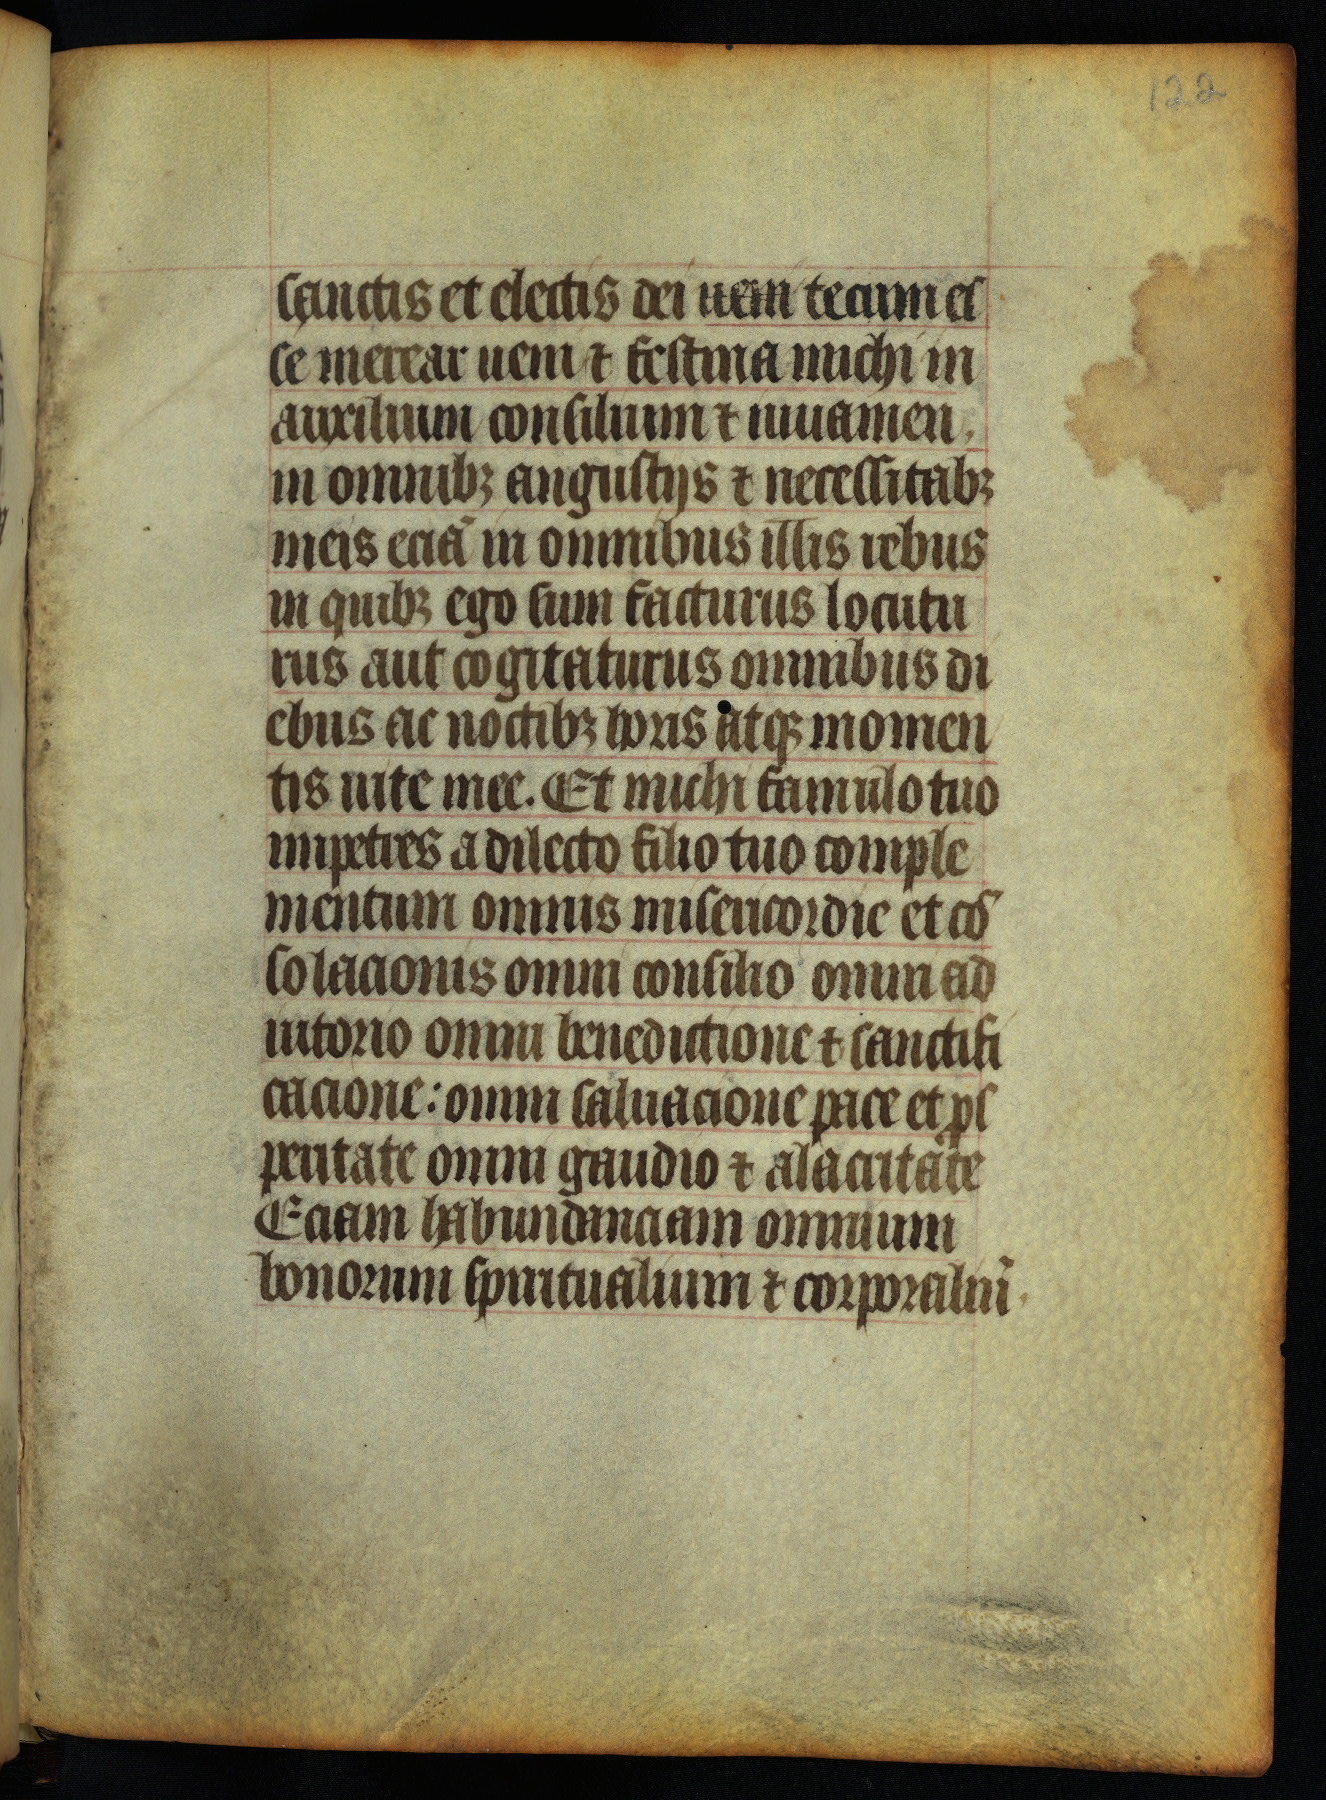 122
sanctis et electis dei ueni tecum es
se merear ueni ⁊ festina michi in
auxilium consilium ⁊ iuuamen,
in omnibꝫ angustijs ⁊ necessitabꝫ
meis eciā in omnibus illis rebus
in quibꝫ ego sum facturus locutu
rus aut cogitaturus omnibus di
ebus ac noctibꝫ horis atqꝫ momen
tis uite mee. Et michi famulo tuo
impetres a dilecto filio tuo comple
mentum omnis misericordie et cō
solacionis omni consilio omni ad
iutorio omni benedictione ⁊ sanctifi
cacione: omni saluacione pace et ꝓs
peritate omni gaudio ⁊ alacritate
Eciam habundanciam omnium
bonorum spiritualium ⁊ corporaliū.